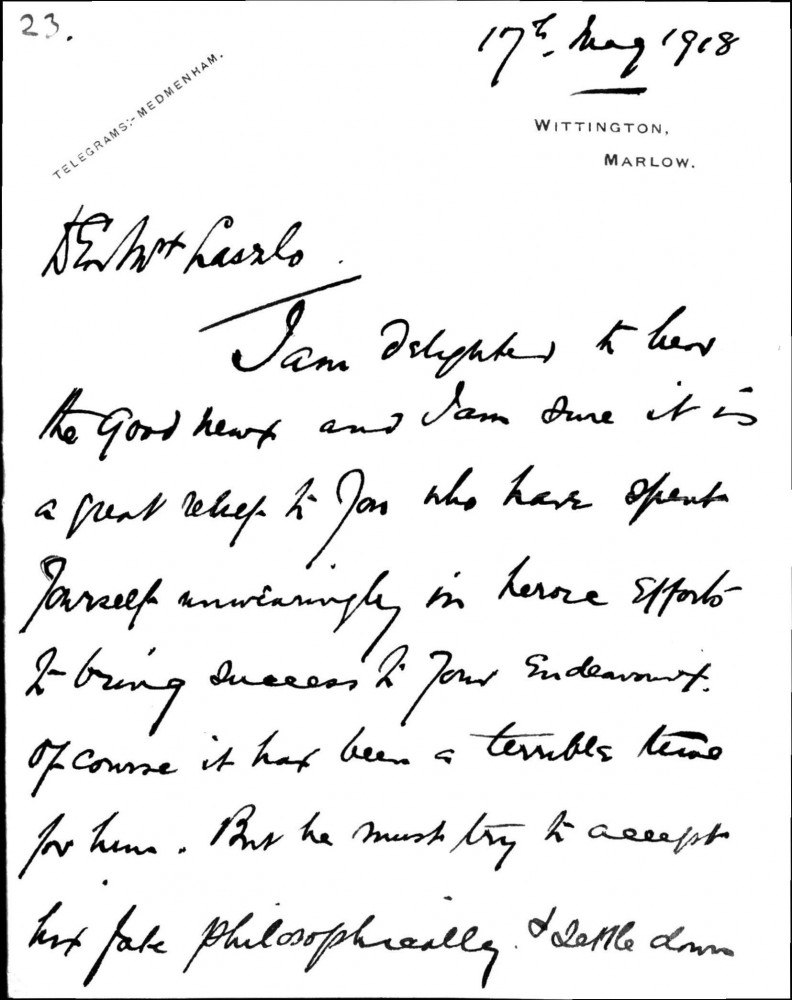 23.
17th May 1918
TELEGRAMS:- MEDMENHAM.
WITTINGTON,
MARLOW.
Dear Mrs Laszlo.
I am delighted to hear
the good news and I am sure it is
a great relief to you who have spent
yourself unwearingly in heroic efforts
to bring success to your endeavours.
Of course it has been a terrible time
for him. But he must try to accept
his fate philosophically & settle down